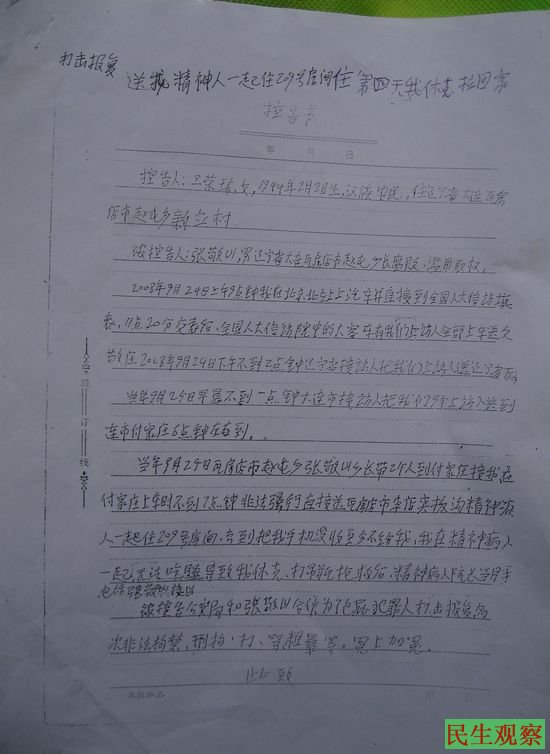 打击报复
送我精神人一起住209号房间住第四天我休克拉回家
控告书
年 月 日
控告人:王荣 女,1944年2月2日生,汉族 农民,住辽宁省大连瓦房
店市赵屯乡新立村
被控告人:张敬山,男 辽宁省大连瓦房店市赵屯乡长 滥用职权,
2008年9月24日上午9点钟我在北京北站上汽车直接到全国人大信访填
表,11点20分交表后,全国人大信访院中的大客车有我们上访人全部上车送久
敬庄2008年9月24日下午不到2点钟辽宁省接访人把我们上访人送辽宁
当年9月25日早晨不到一点钟大连市接访人把我们9个上访人送到
连市付家庄6点钟左右到。
当年9月25日瓦房店市赵屯乡张敬山乡长带2个人到付家庄接我在
付家庄上车时不到7点钟 非法强行直接送瓦房店市李店 沟精神病
人一起住209号房间,去到把我手机没收至今不给我,我在精神病人
一起无法吃睡导致我休克,打 抢救后,精神病人院长当月
电话张敬山接回
被控告公安局和张敬山合伙为了包庇犯罪人打击报复多
次非法拘禁、刑拘、打、骂粗暴等,冤上加冤。
此致
装订线
第 页
民生观察